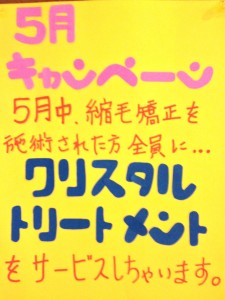 5月
キャンペーン
5月中、縮毛矯正を
施術された方全員に...
クリスタル
トリートメント
をサービスしちゃいます。